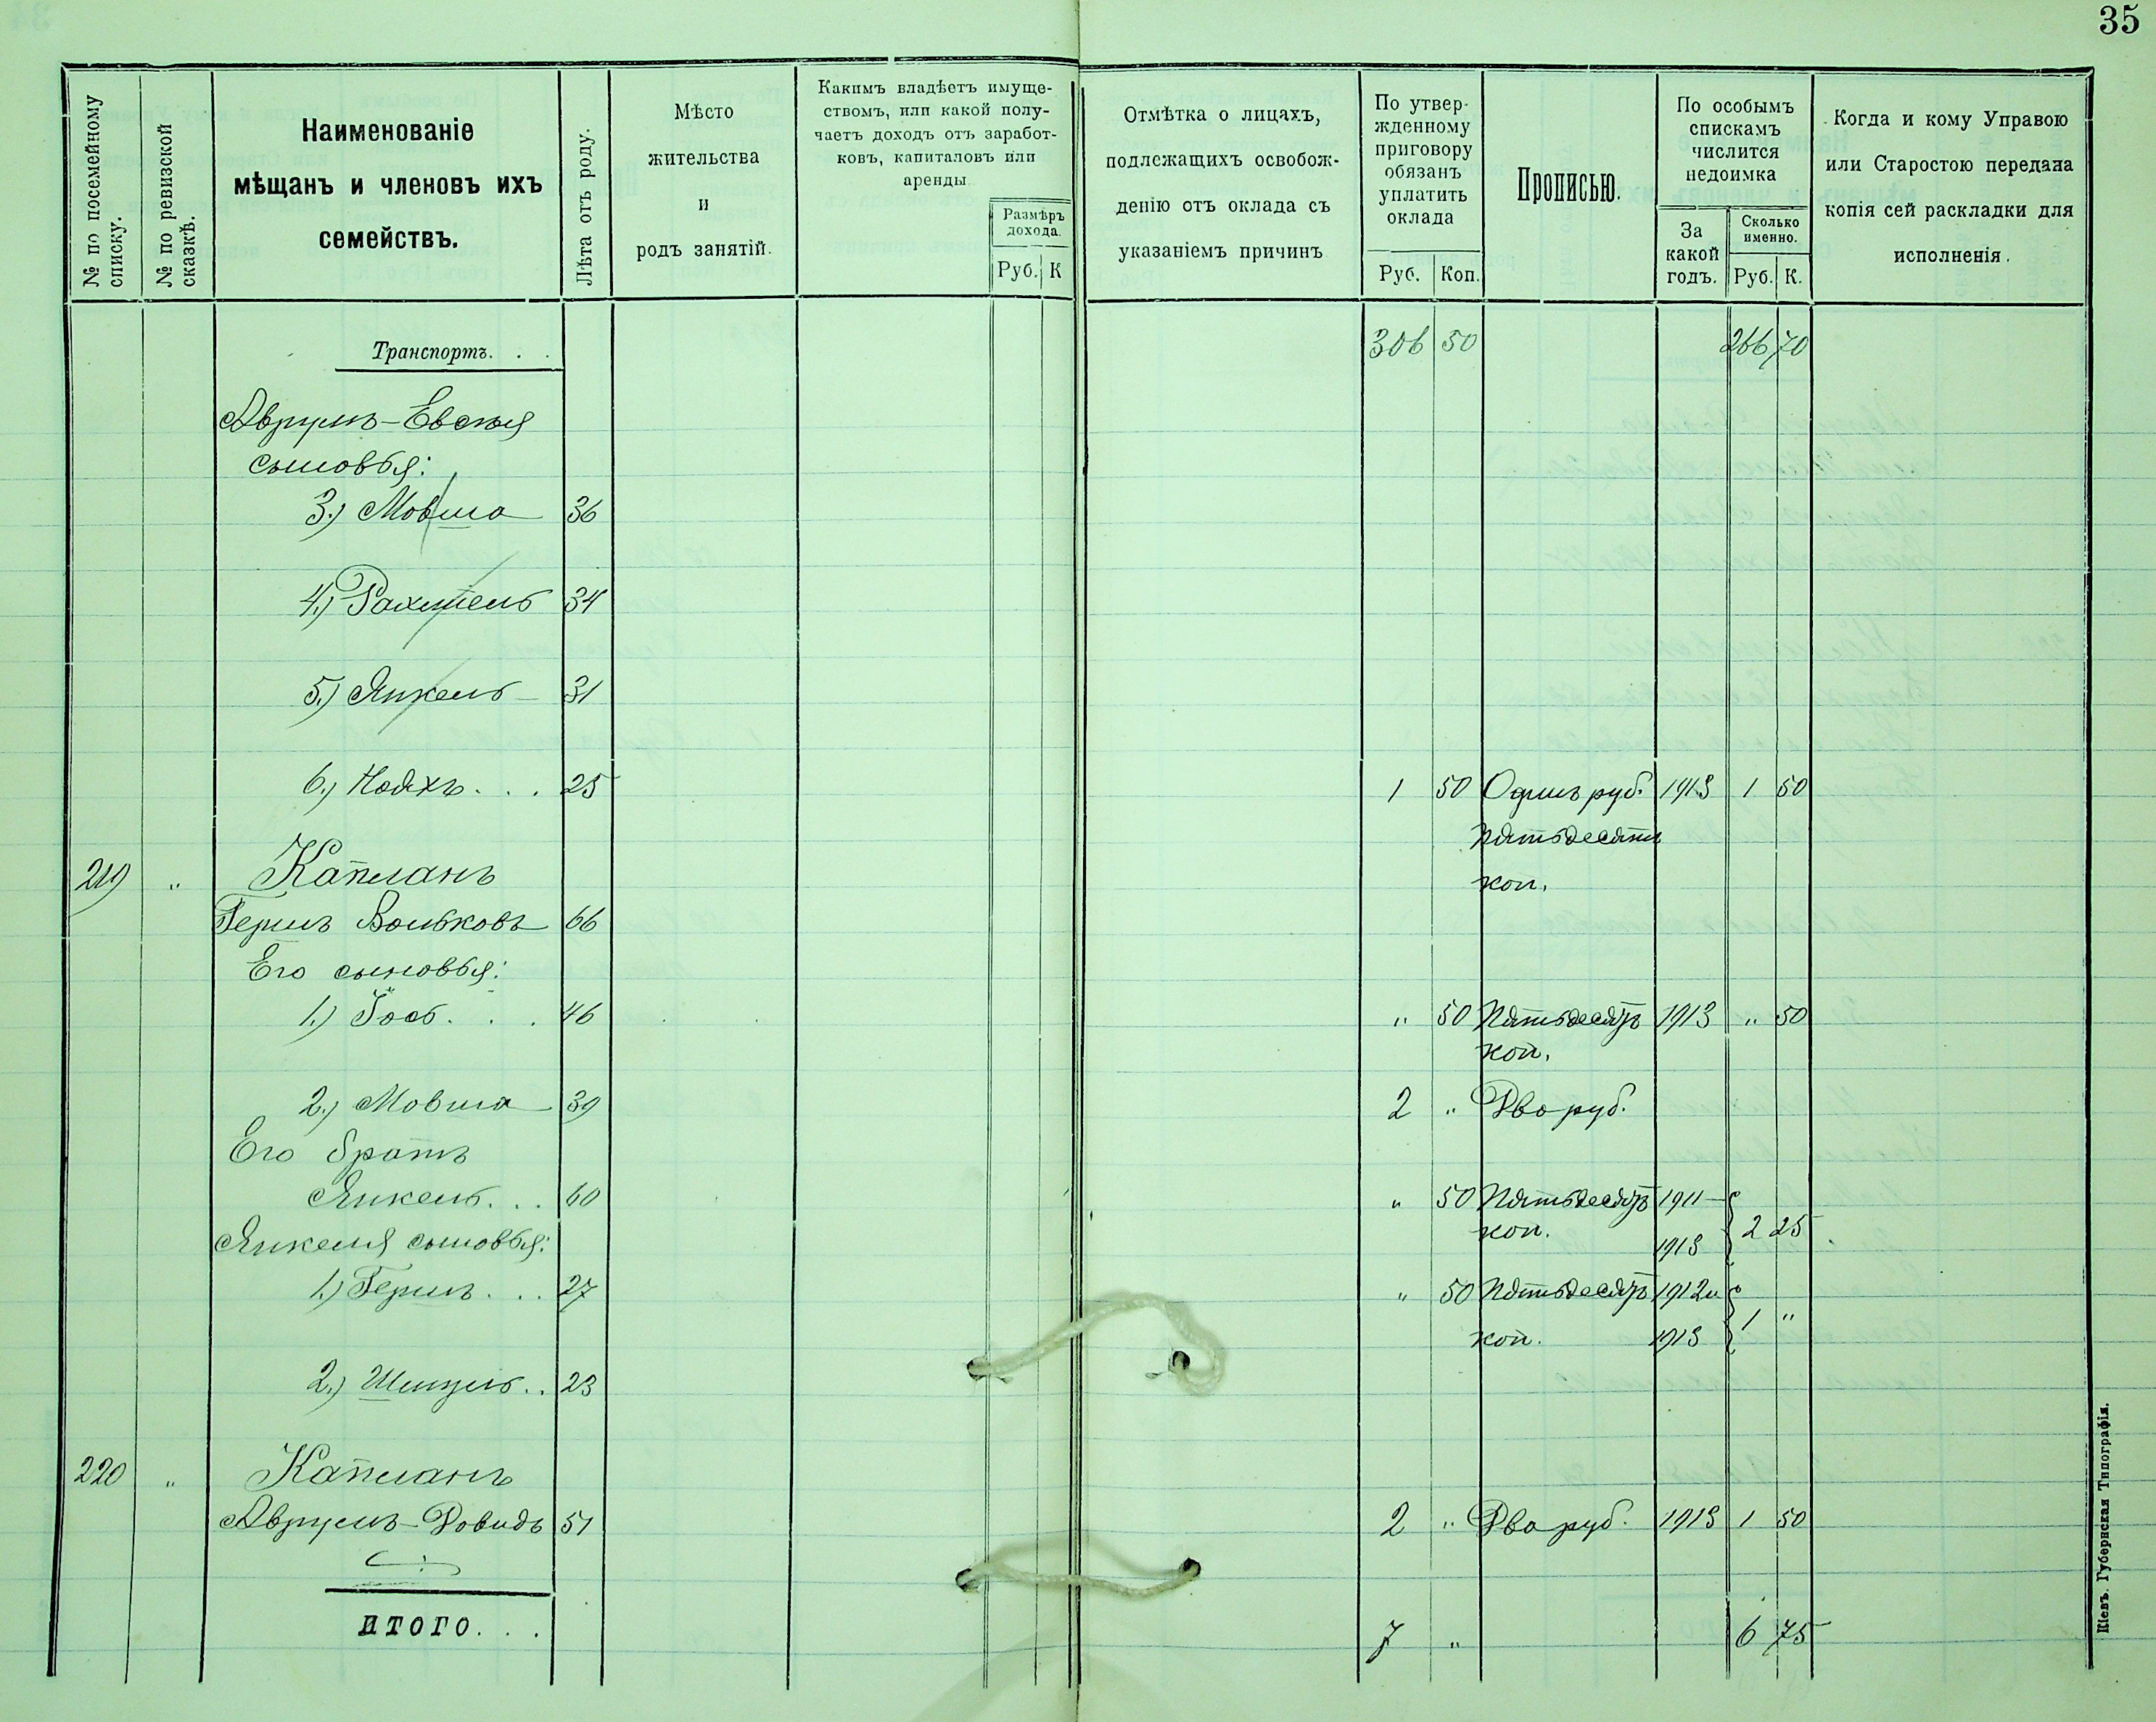 35
№ по посемейному списку.
№ по ревизской сказкѣ.
Наименованіе
мѣщанъ и членовъ ихъ
семействъ.
Лѣта отъ роду.
Мѣсто
жительства
и
родъ занятій.
Какимъ владѣетъ имуще-
ствомъ, или какой полу-
чаетъ доходъ отъ заработ-
ковъ, капиталовъ или
аренды.
Размѣръ
дохода.
Руб. К
Отмѣтка о лицахъ,
подлежащихъ освобож-
денію отъ оклада съ
указаніемъ причинъ
По утвер-
жденному
приговору
обязанъ
уплатить
оклада
Руб. Коп.
Прописью.
По особымъ
спискамъ
числится
недоимка
За
какой
годъ.
Сколько
именно.
Руб. К.
Когда и кому Управою
или Старостою передана
копія сей раскладки для
исполненія.
Транспортъ. . . 306 50 266 70
Аврумъ-Евсея
сыновья:
3.) Мовша 36
4.) Рахмиель 34
5.) Янкель 31
6.) Нояхъ. . . 25 1 50 Одинъ руб. 1913 1 50
пятьдесятъ
219 " Капланъ коп.
Гершъ Вольковъ 66
Его сыновья:
1.) Іось. . . 46 " 50 Пятьдесятъ 1913 " 50
коп.
2.) Мовша 39 2 " Два руб.
Его братъ
Янкель. . . 60 " 50 Пятьдесятъ 1911-
Янкеля сыновья: коп. 1913 2 25
1.) Гершъ. . . 27 " 50 Пятьдесятъ 1912 и
коп. 1913 1 "
2.) Шмуль. . 23
220 " Капланъ
Аврумъ-Довидъ 51 2 " Два руб. 1913 1 50
ИТОГО. . . 7 " 6 75
Кіевъ. Губернская Типографія.